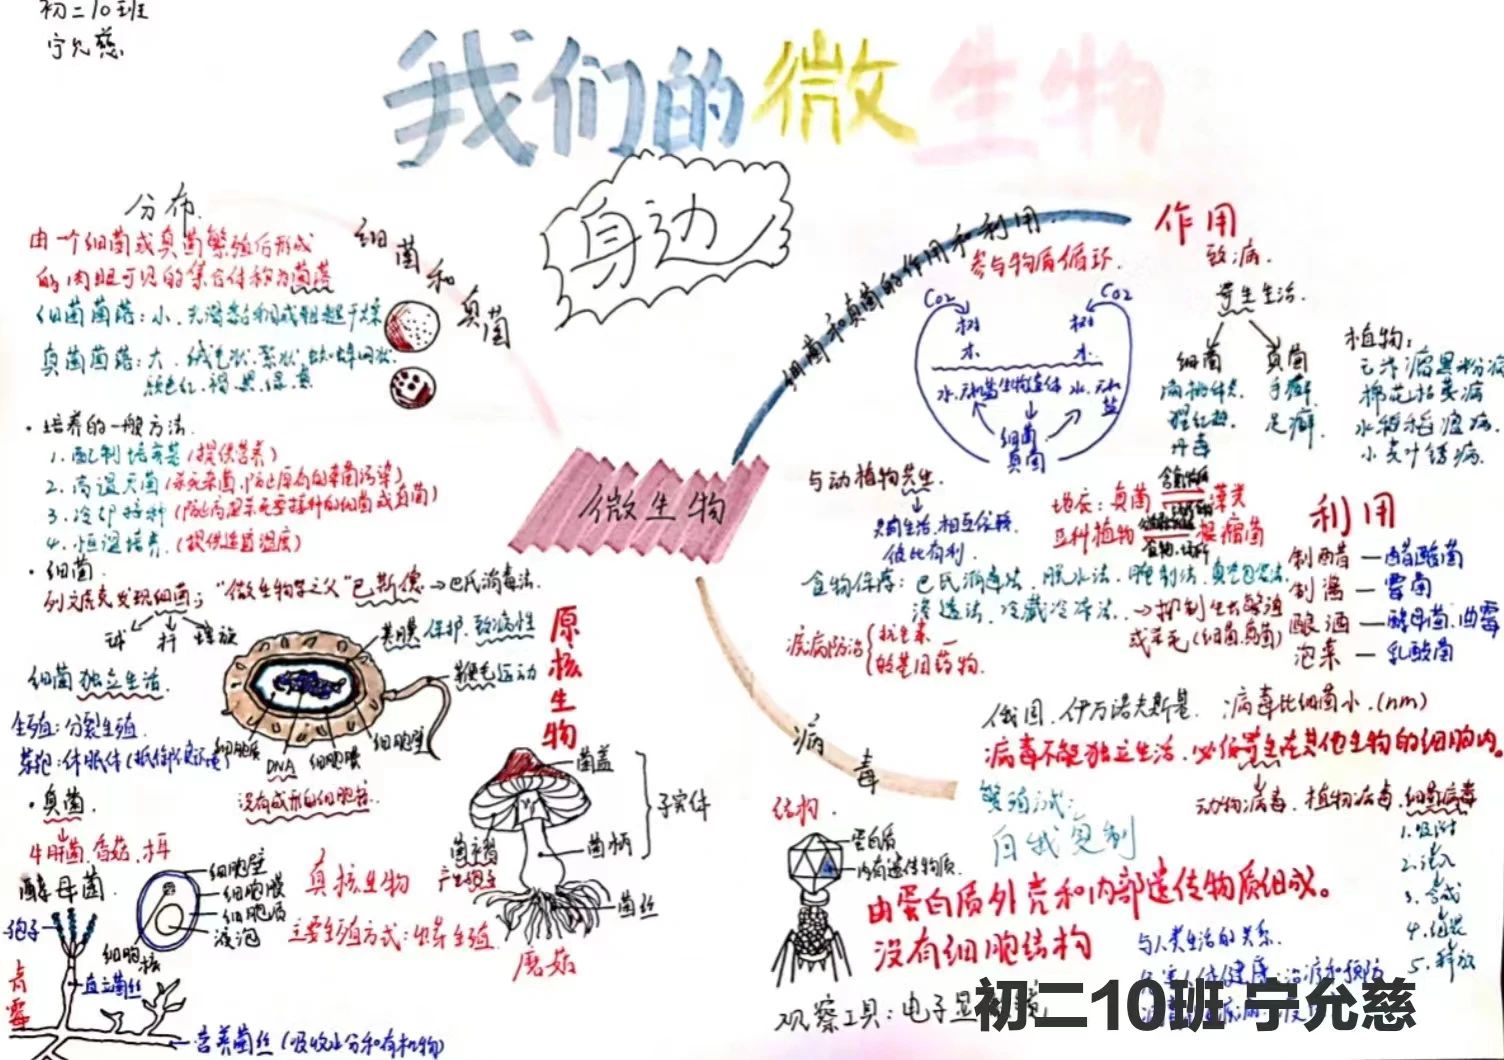 初二10班
宁允慈
我们的微生物
身边
微生物
细菌和真菌
分布
由一个细菌或真菌繁殖后形成
的肉眼可见的集合体称为菌落
细菌菌落:小、光滑黏稠或粗糙干燥
真菌菌落:大、绒毛状、絮状、蜘蛛网状
颜色红、褐、黑、绿、黄
·培养的一般方法
1.配制培养基(提供营养)
2.高温灭菌(杀死杂菌,防止原有的杂菌污染)
3.冷却接种
4.恒温培养(提供适宜温度)
·细菌
列文虎克发现细菌;"微生物学之父"巴斯德→巴氏消毒法
球 杆 螺旋
荚膜 保护、致病性
鞭毛运动
细胞质
DNA
细胞膜
细胞壁
没有成形的细胞核
原核生物
细菌独立生活
生殖:分裂生殖
芽孢:休眠体
·真菌
牛肝菌、香菇、木耳
酵母菌
细胞壁
细胞膜
细胞质
液泡
细胞核
真核生物
主要生殖方式:出芽生殖
孢子
青霉
直立菌丝
营养菌丝(吸收水分和有机物)
菌盖
子实体
菌褶
产生孢子
菌柄
菌丝
蘑菇
细菌和真菌的作用和利用
作用
参与物质循环
CO2
CO2
细菌
真菌
致病
寄生生活
细菌 真菌
扁桃体炎 手癣
猩红热 足癣
丹毒
植物:
玉米瘤黑粉病
棉花枯萎病
水稻稻瘟病
小麦叶锈病
与动植物共生
共同生活、相互依赖
彼此有利
地衣:真菌 藻类
豆科植物 根瘤菌
食物保存:巴氏消毒法、脱水法、腌制法、真空包装法
渗透法、冷藏冷冻法→抑制生长繁殖
或杀死(细菌、真菌)
疾病防治{抗生素
转基因药物
利用
制醋—醋酸菌
制酱—霉菌
酿酒—酵母菌、曲霉
泡菜—乳酸菌
病毒
俄国、伊万诺夫斯基 病毒比细菌小(nm)
病毒不能独立生活,必须寄生在其他生物的细胞内。
动物病毒、植物病毒、细菌病毒
繁殖方式:
自我复制
1.吸附
2.注入
3.合成
4.组装
5.释放
结构
蛋白质
内有遗传物质
由蛋白质外壳和内部遗传物质组成。
没有细胞结构
与人类生活的关系
观察工具:电子显
初二10班 宁允慈